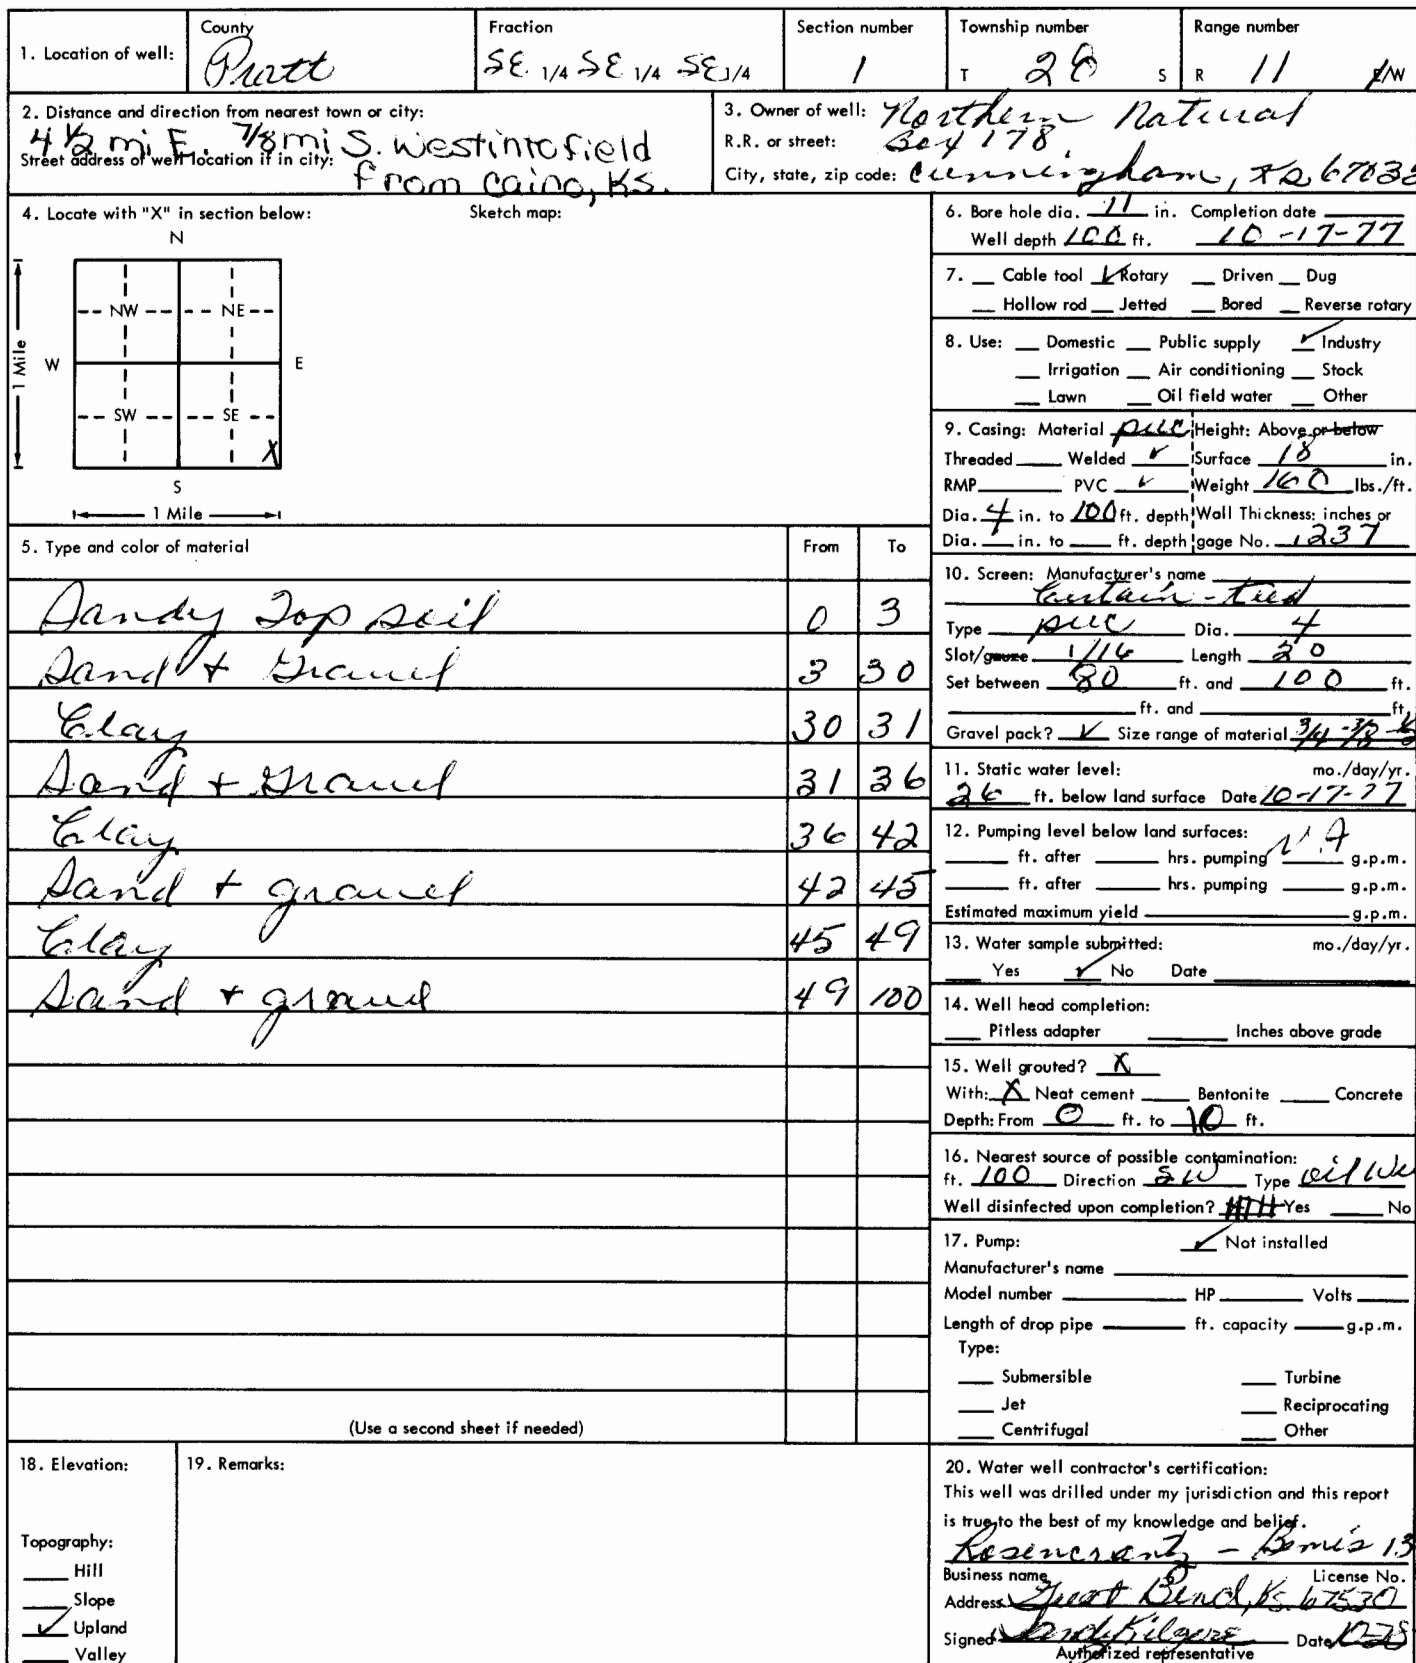 1. Location of well: County Pratt Fraction SE 1/4 SE 1/4 SE 1/4 Section number 1 Township number T 28 S Range number R 11 E/W
2. Distance and direction from nearest town or city:
4 1/2 mi E. 7/8 mi S. West into field
Street address of well location if in city:
from Cairo, Ks.
3. Owner of well: Northern Natural
R.R. or street: Box 178
City, state, zip code: Cunningham, Ks 6703
4. Locate with "X" in section below: Sketch map:
N
NW NE
W E
1 Mile
SW SE
X
S
1 Mile
5. Type and color of material From To
Sandy Top soil 0 3
Sand + Gravel 3 30
Clay 30 31
Sand + Gravel 31 36
Clay 36 42
Sand + gravel 42 45
Clay 45 49
Sand + gravel 49 100
(Use a second sheet if needed)
6. Bore hole dia. 11 in. Completion date
Well depth 100 ft. 10-17-77
7. Cable tool ✓ Rotary Driven Dug
Hollow rod Jetted Bored Reverse rotary
8. Use: Domestic Public supply ✓ Industry
Irrigation Air conditioning Stock
Lawn Oil field water Other
9. Casing: Material PVC Height: Above or below
Threaded Welded ✓ Surface 18 in.
RMP PVC ✓ Weight 160 lbs./ft.
Dia. 4 in. to 100 ft. depth Wall Thickness: inches or
Dia. in. to ft. depth gage No. .237
10. Screen: Manufacturer's name
Certain-teed
Type PVC Dia. 4
Slot/gauze 1/16 Length 20
Set between 80 ft. and 100 ft.
ft. and ft.
Gravel pack? ✓ Size range of material 3/4 -3/8
11. Static water level: mo./day/yr.
26 ft. below land surface Date 10-17-77
12. Pumping level below land surfaces: N.A
ft. after hrs. pumping g.p.m.
ft. after hrs. pumping g.p.m.
Estimated maximum yield g.p.m.
13. Water sample submitted: mo./day/yr.
Yes ✓ No Date
14. Well head completion:
Pitless adapter Inches above grade
15. Well grouted? X
With: X Neat cement Bentonite Concrete
Depth: From 0 ft. to 10 ft.
16. Nearest source of possible contamination:
ft. 100 Direction SW Type oil We
Well disinfected upon completion? HTH Yes No
17. Pump: ✓ Not installed
Manufacturer's name
Model number HP Volts
Length of drop pipe ft. capacity g.p.m.
Type:
Submersible Turbine
Jet Reciprocating
Centrifugal Other
18. Elevation:
Topography:
Hill
Slope
✓ Upland
Valley
19. Remarks:
20. Water well contractor's certification:
This well was drilled under my jurisdiction and this report
is true to the best of my knowledge and belief.
Rosencrantz - Bemis 13
Business name License No.
Address Great Bend, Ks. 67530
Signed Kilgore Date 10-28
Authorized representative